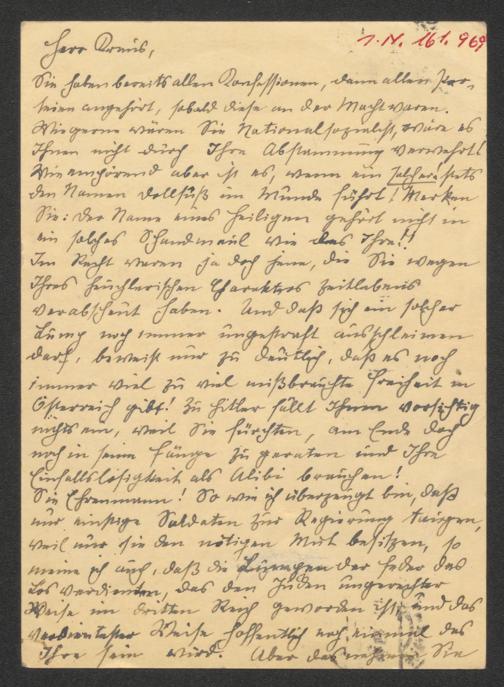 I.N. 161.969
Herr Kraus,
Sie haben bereits allen Konfessionen, dann allen Par-
teien angehört, sobald diese an der Macht waren.
Wie gerne wären Sie Nationalsozialist, wäre es
Ihnen nicht durch Ihre Abstammung verwehrt!
Wie empörend aber ist es, wenn ein solcher stets
den Namen Dollfuß im Munde führt! Merken
Sie: Der Name eines Heiligen gehört nicht in
ein solches Schandmaul wie das Ihre!!
Im Recht waren ja doch jene, die Sie wegen
Ihres heuchlerischen Charakters zeitlebens
verabscheut haben. Und daß sich ein solcher
Lump noch immer ungestraft ausschleimen
darf, beweist nur zu deutlich, daß es noch
immer viel zu viel mißbrauchte Freiheit in
Österreich gibt! Zu Hitler fällt Ihnen vorsichtig
nichts ein, weil Sie fürchten, am Ende doch
noch in seine Fänge zu geraten und Ihre
Einfallslosigkeit als Alibi brauchen!
Sie Ehrenmann! So wie ich überzeugt bin, daß
nur einstige Soldaten zur Regierung taugen,
weil nur sie den nötigen Mut besitzen, so
meine ich auch, daß die Lumpen der Feder das
Los verdienten, das den Juden ungerechter
Weise im dritten Reich geworden ist und das
verdienter Weise hoffentlich noch einmal das
Ihre sein wird. Aber das nehmen Sie